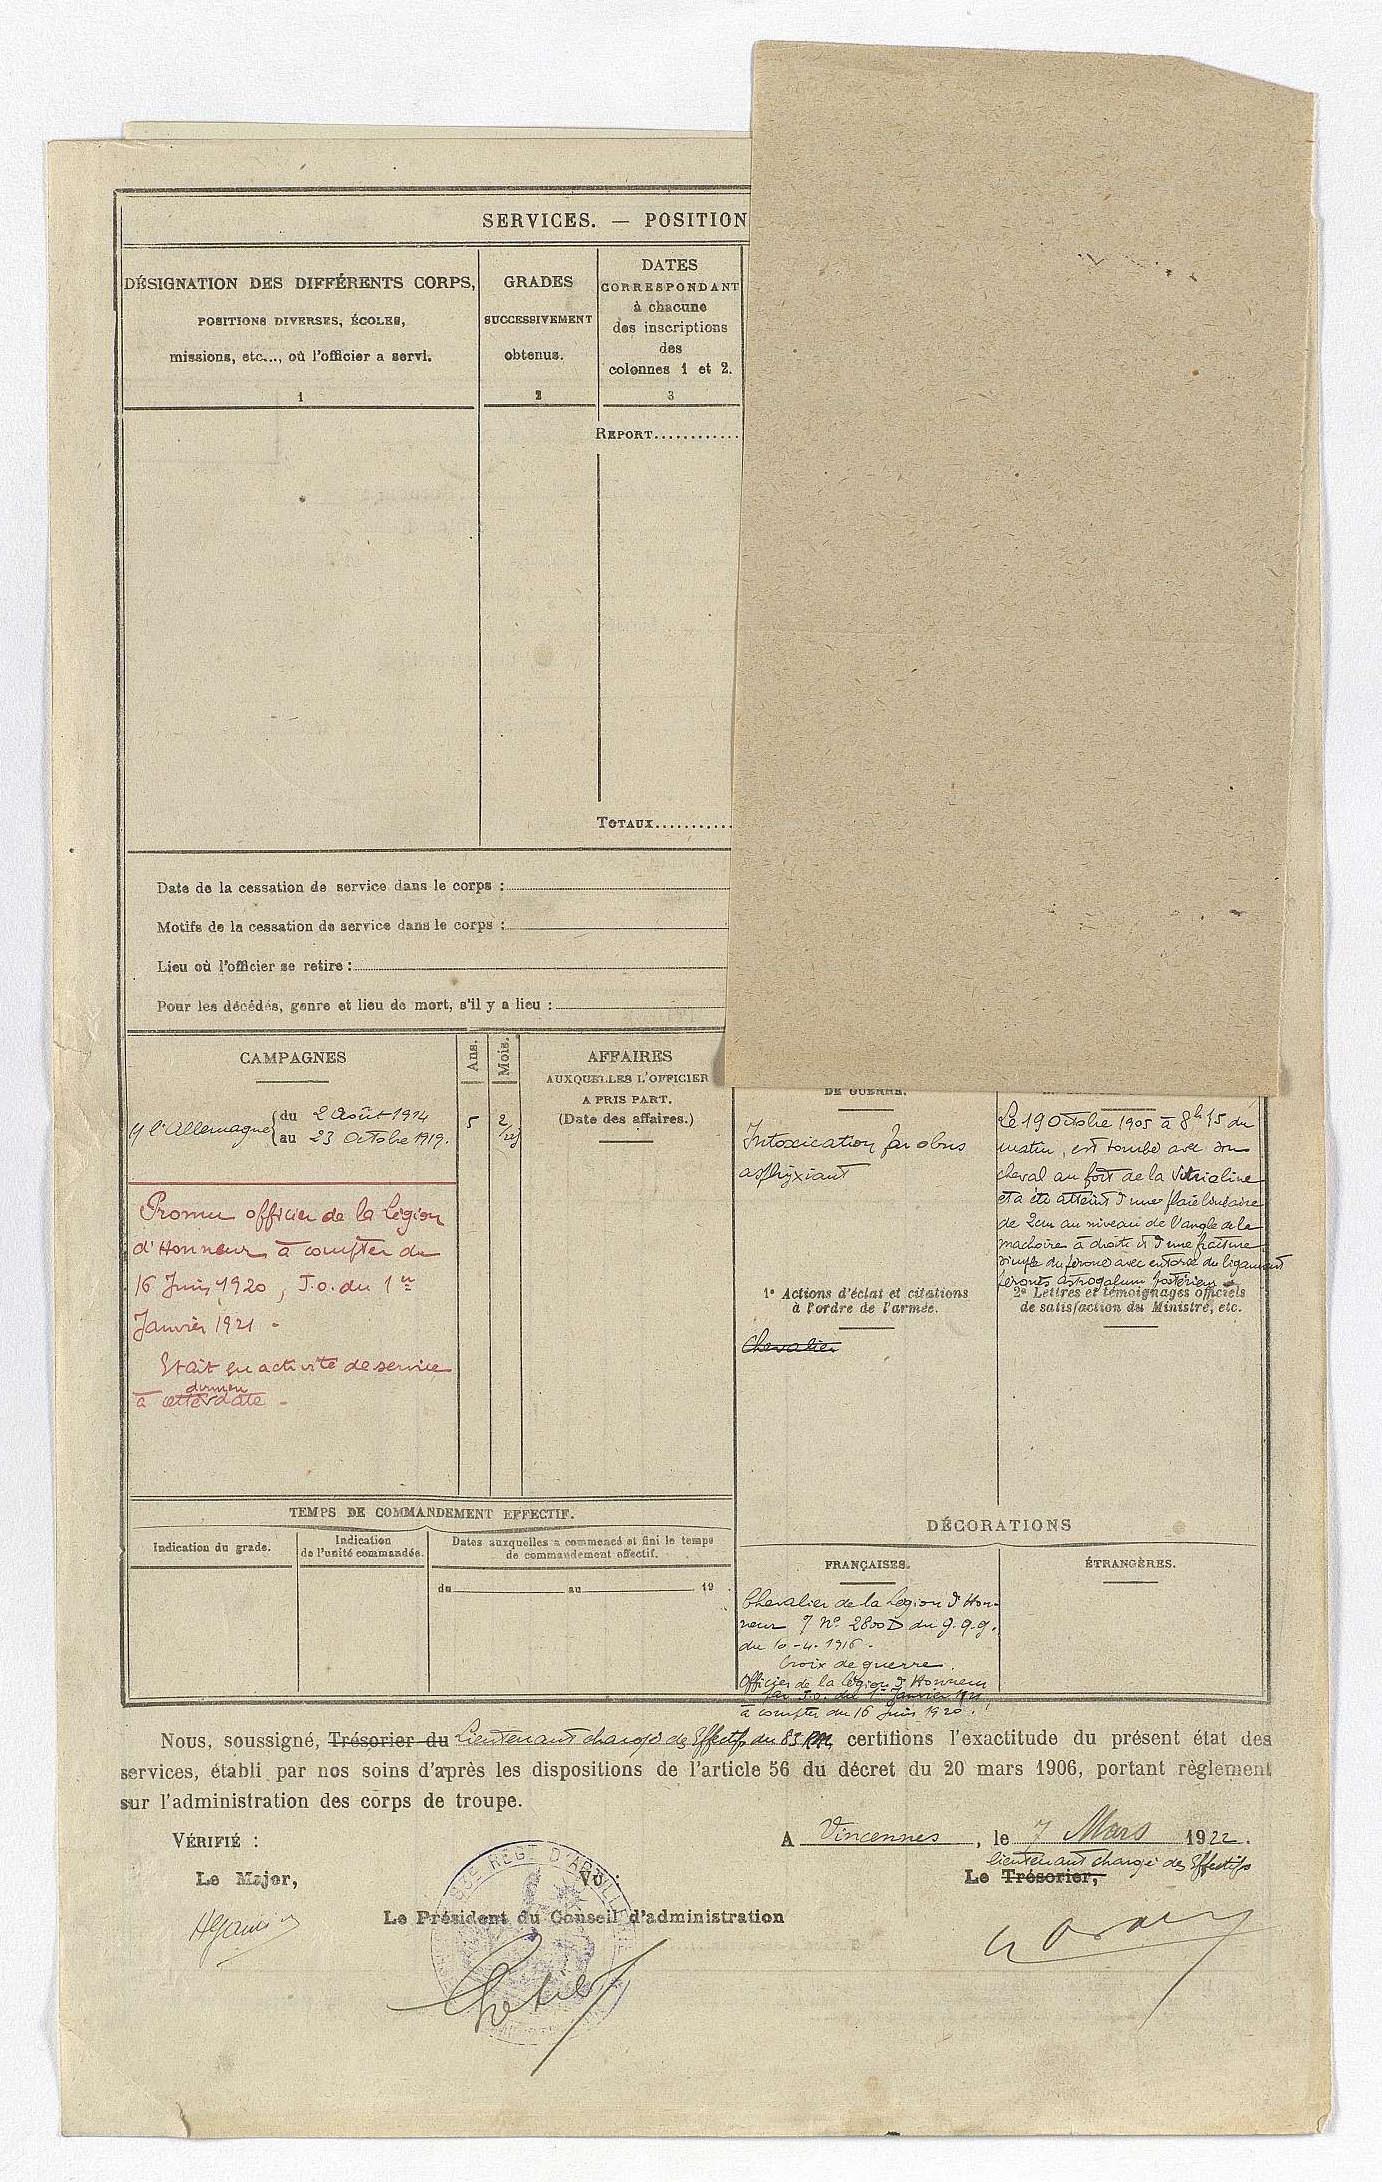 SERVICES. — POSITION
DÉSIGNATION DES DIFFÉRENTS CORPS,
POSITIONS DIVERSES, ÉCOLES,
missions, etc..., où l'officier a servi.
1
GRADES
SUCCESSIVEMENT
obtenus.
2
DATES
CORRESPONDANT
à chacune
des inscriptions
des
colonnes 1 et 2.
3
REPORT............
TOTAUX...........
Date de la cessation de service dans le corps :
Motifs de la cessation de service dans le corps :
Lieu où l'officier se retire :
Pour les décédés, genre et lieu de mort, s'il y a lieu :
CAMPAGNES
Ans.
Mois.
l'Allemagne { du 2 Août 1914
au 23 Octobre 1919.
5
2
Promu officier de la Légion
d'Honneur à compter du
16 Juin 1920, J.O. du 1er
Janvier 1921 -
Etait en activité de service
à cette date -
AFFAIRES
AUXQUELLES L'OFFICIER
A PRIS PART.
(Date des affaires.)
DE GUERRE.
Intoxication par obus
asphyxiant
Le 19 Octobre 1905 à 8h 15 du
matin, est tombé avec son
cheval au fort de la Vitrioline
et a été atteint d'une plaie linéaire
de 2cm au niveau de l'angle de la
machoire à droite et d'une fracture
simple du péroné avec entorse du ligament
1° Actions d'éclat et citations
à l'ordre de l'armée.
Chevalier
2° Lettres et témoignages officiels
de satisfaction du Ministre, etc.
TEMPS DE COMMANDEMENT EFFECTIF.
Indication du grade.
Indication
de l'unité commandée.
Dates auxquelles a commencé et fini le temps
de commandement effectif.
du au 19 .
DÉCORATIONS
FRANÇAISES.
ÉTRANGÈRES.
Chevalier de la Légion d'Hon-
neur N° 2800 D du G.Q.G.
du 10-4-1916.
Croix de guerre.
Officier de la Légion d'Honneur
par J.O. du 1er Janvier 1921,
à compter du 16 Juin 1920.
Nous, soussigné, Trésorier du Lieutenant chargé des Effectifs du 83 certifions l'exactitude du présent état des
services, établi par nos soins d'après les dispositions de l'article 56 du décret du 20 mars 1906, portant règlement
sur l'administration des corps de troupe.
A Vincennes, le 7 Mars 1922.
lieutenant chargé des Effectifs
Le Trésorier,
VÉRIFIÉ :
Le Major,
VU :
Le Président du Conseil d'administration
REGT D'ARTILLERIE